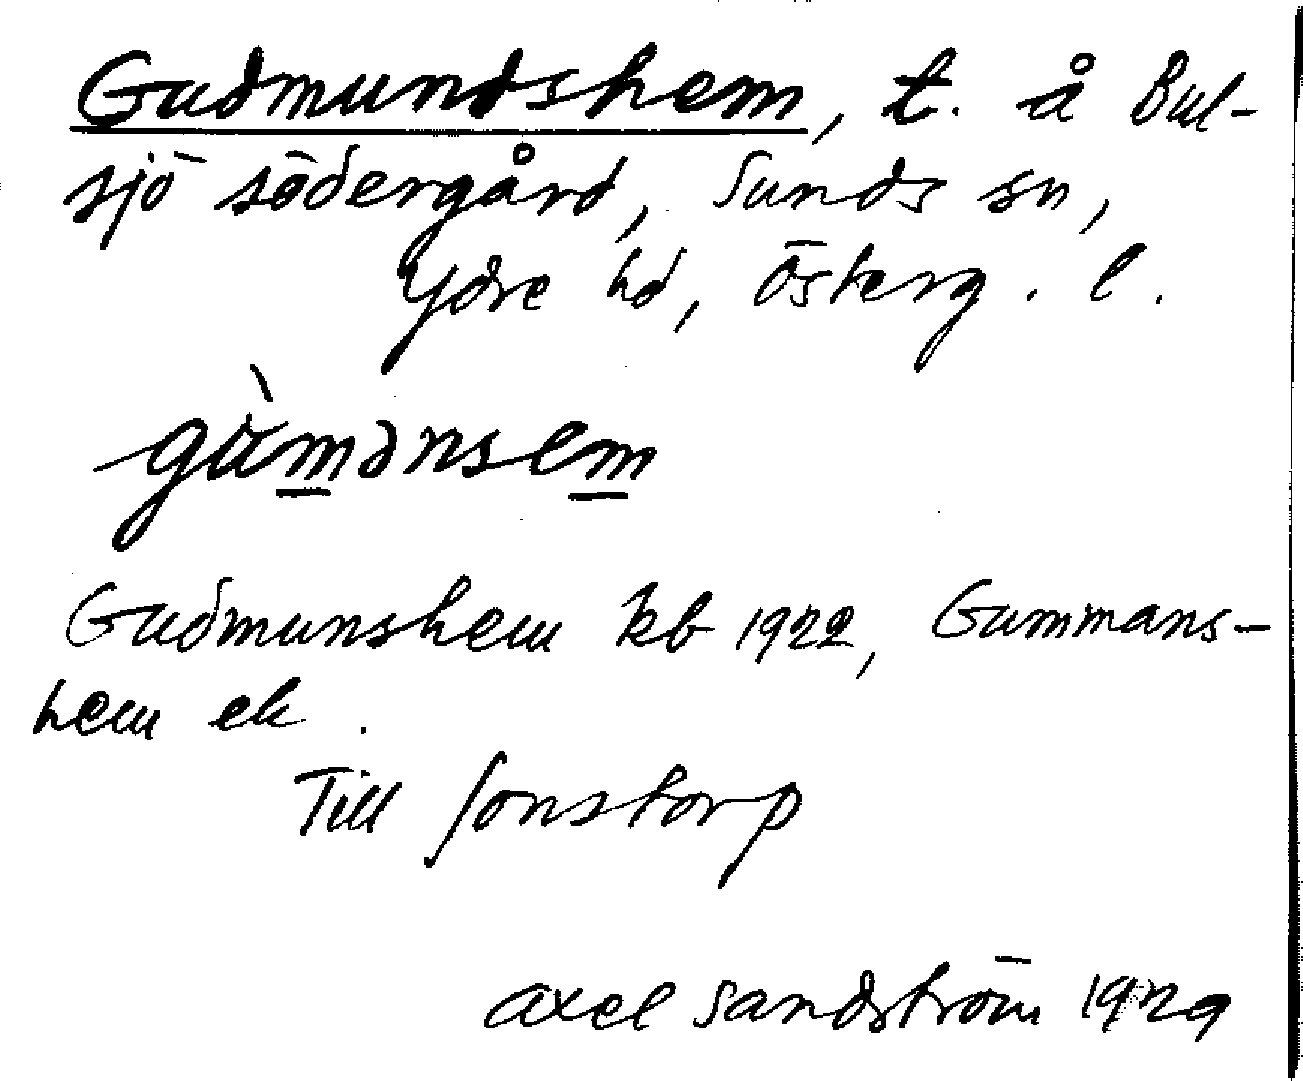 Gudmundshem, t. å Bul-
sjö södergård, Sunds sn,
Ydre hd, Österg. l.
gùmənsem
Gudmunshem kb 1922, Gummans-
hem ek.
Till Jonstorp
Axel Sandström 1929